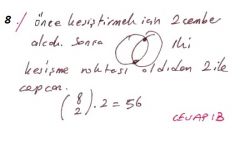 8-/ önce kesiştirmek için 2 çember
alcak. Sonra iki
kesişme noktası olduğdan 2 ile
çarpcan.
(8 2) . 2 = 56
CEVAP: B